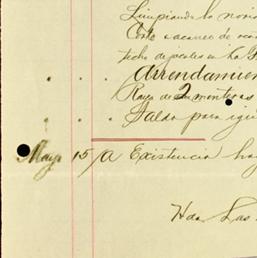 Limpiando la noria
Costo y acarreo de
techo de jacales en La
" " Arrendamien
Raya de 2 monteros
" " Saldo para igu
Mayo 15 /A Existencia hoy
Hda Las